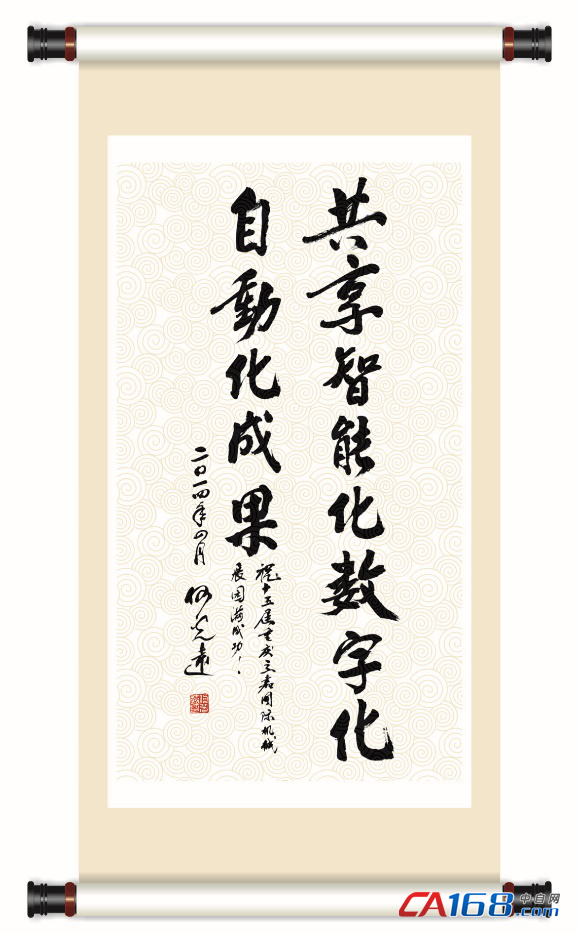 共享智能化数字化
自動化成果
祝十五届重庆立嘉国际机械
展圆满成功！
二〇一四年四月
何光远
CA168 中自网
.com